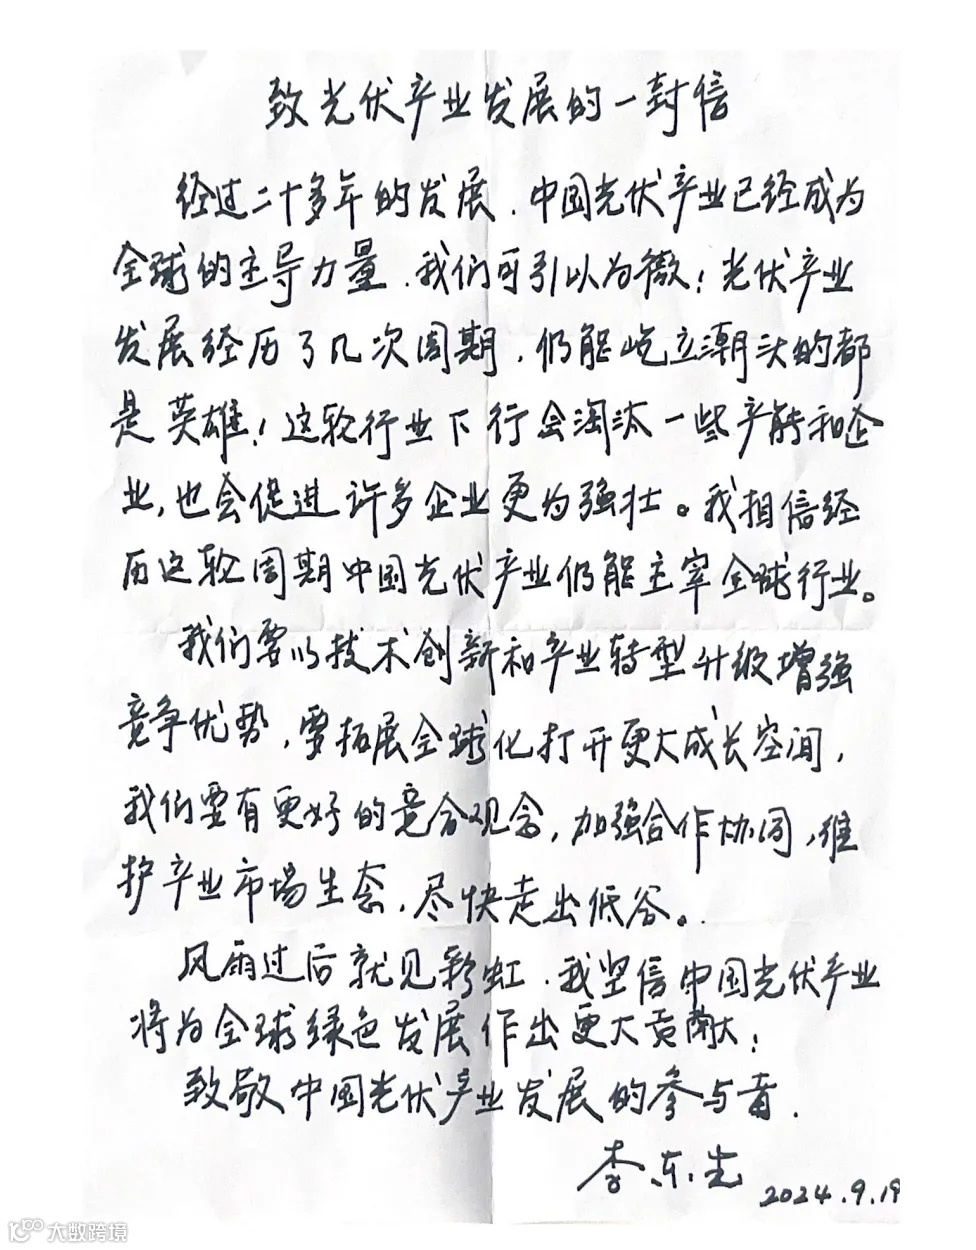 致光伏产业发展的一封信
经过二十多年的发展.中国光伏产业已经成为
全球的主导力量.我们可引以为傲!光伏产业
发展经历了几次周期.仍能屹立潮头的都
是英雄!这轮行业下行会淘汰一些产能和企
业,也会促进许多企业更为强壮。我相信经
历这轮周期中国光伏产业仍能主宰全球行业。
我们要以技术创新和产业转型升级增强
竞争优势,要拓展全球化打开更大成长空间,
我们要有更好的竞合观念,加强合作协同,维
护产业市场生态.尽快走出低谷。
风雨过后就见彩虹.我坚信中国光伏产业
将为全球绿色发展作出更大贡献!
致敬中国光伏产业发展的参与者.
李东生
2024.9.19
大数跨境